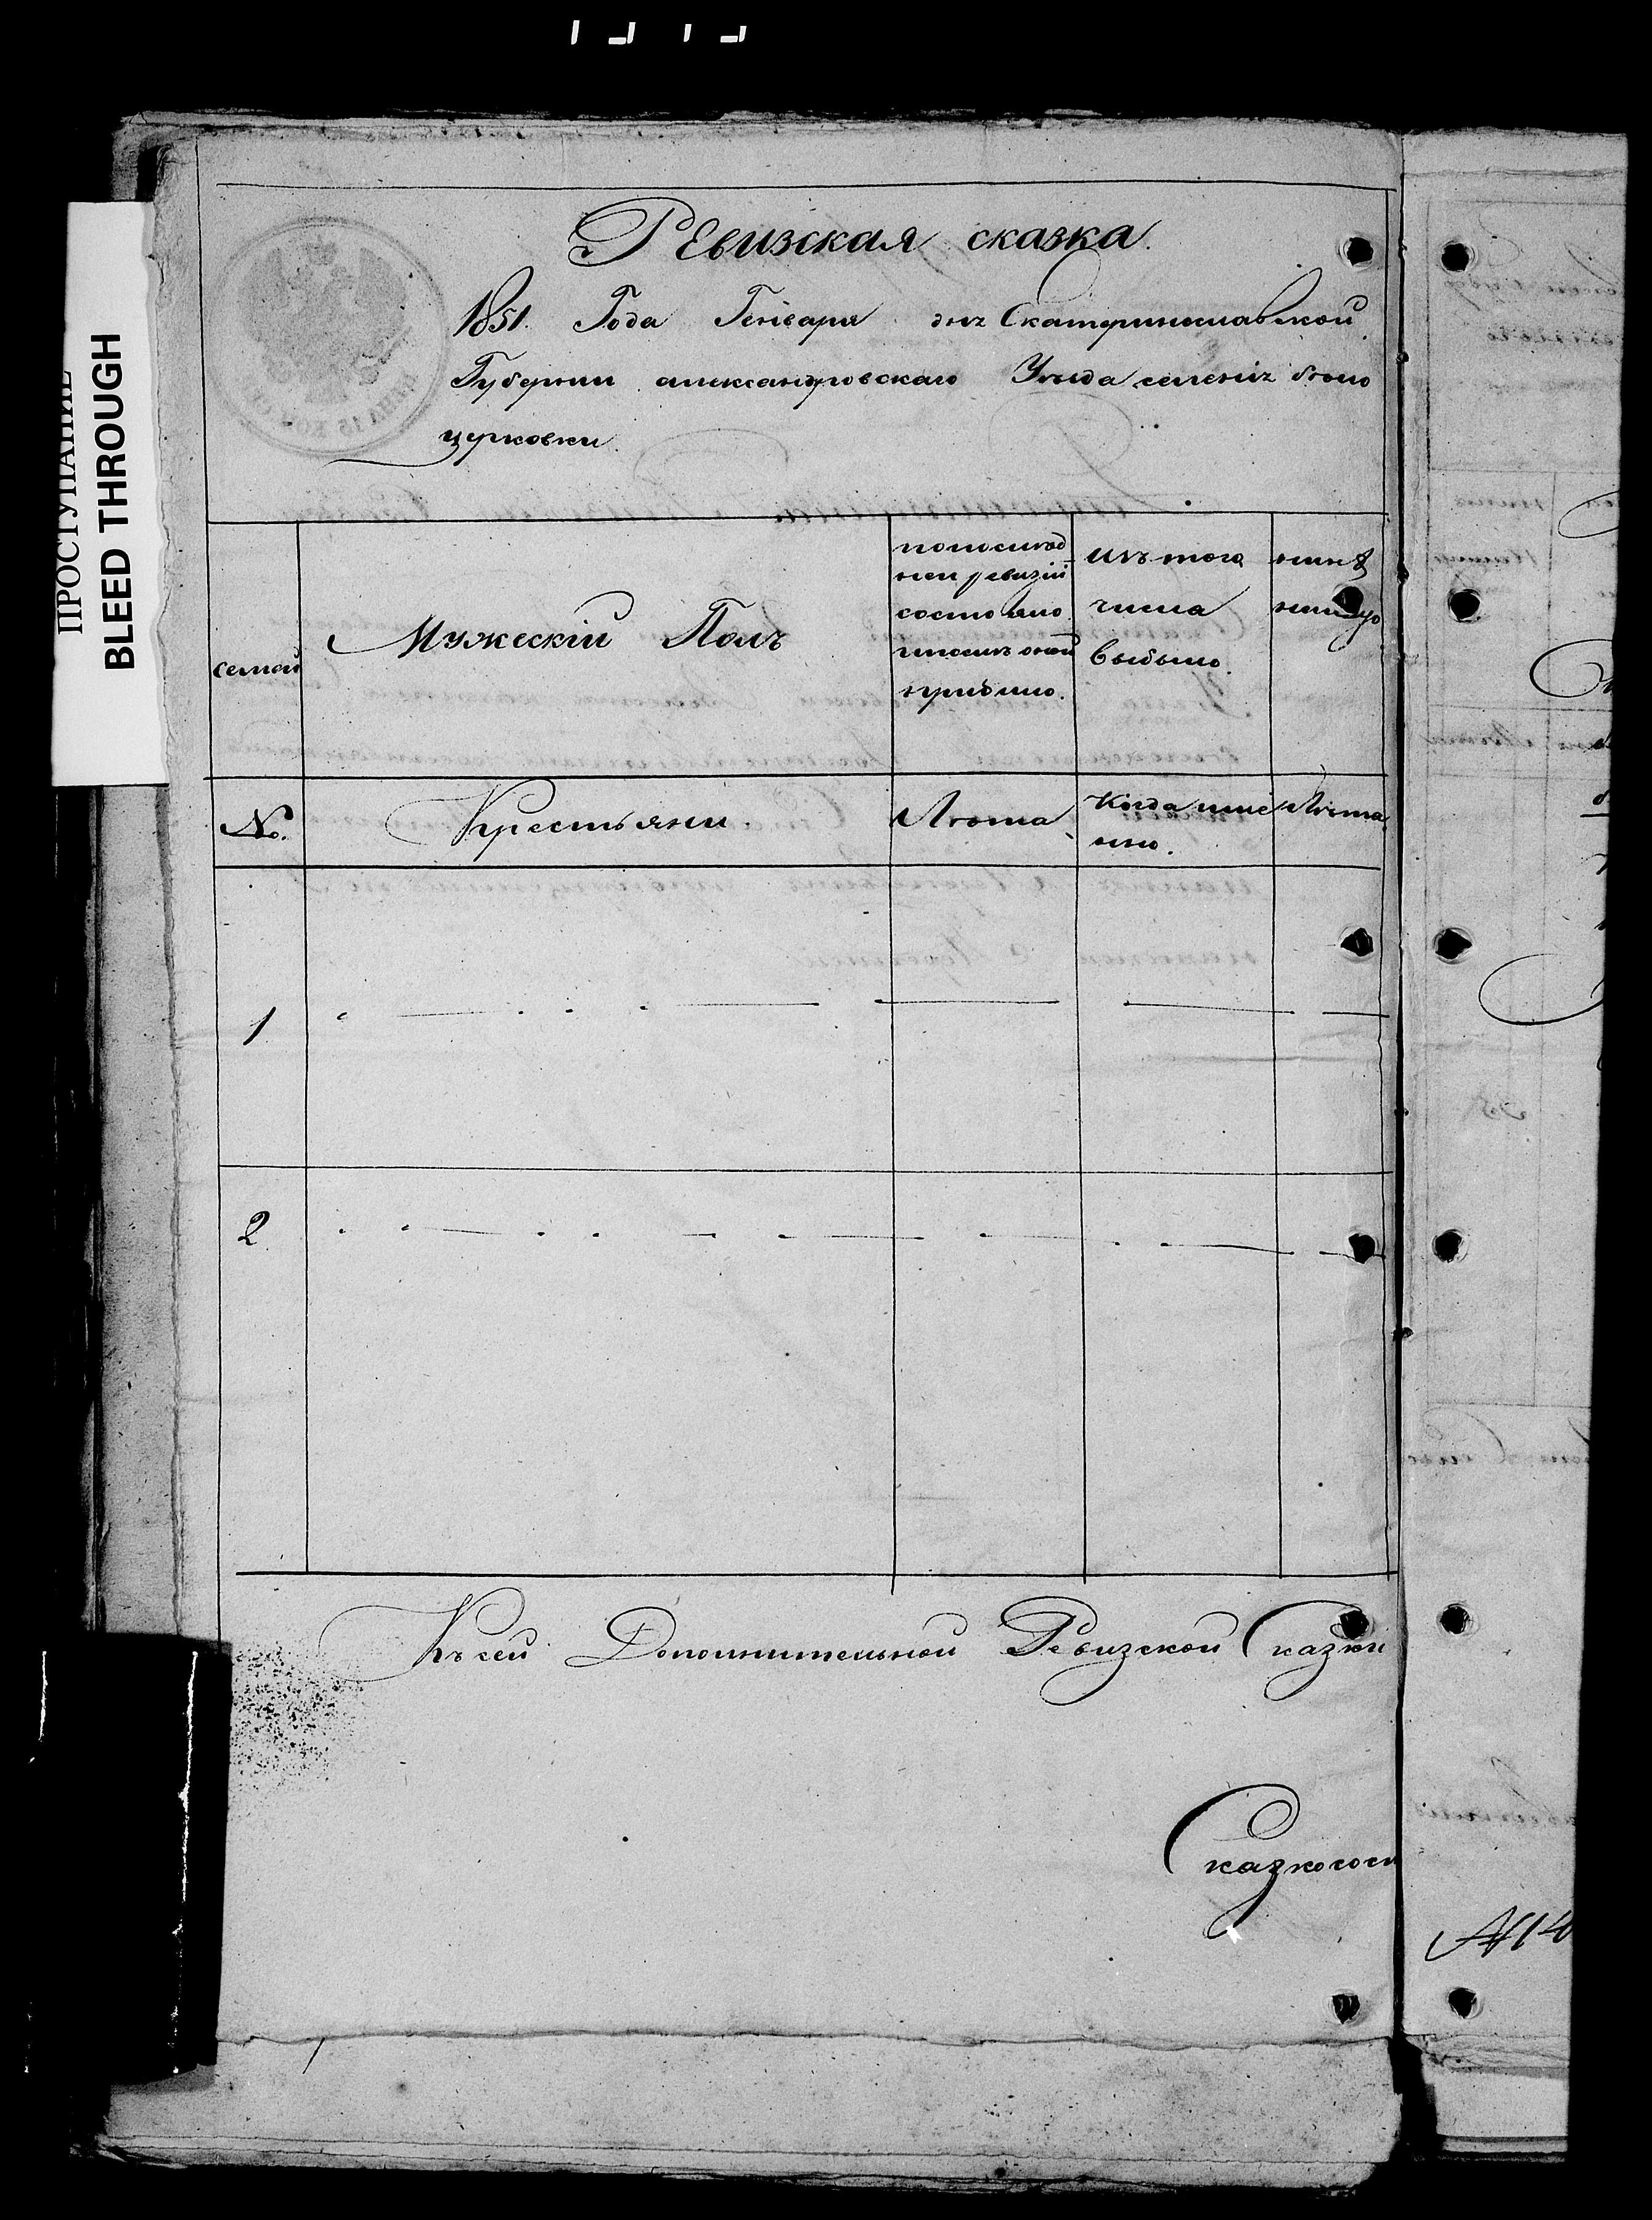 ПРОСТУПАНИЕ
BLEED THROUGH
Ревизская сказка.
1851. Года Генваря дня Екатеринославской
Губернии александровскаго Уезда селения бело
церковки.
семей
Мужескій Полъ
попослед
ней ревизіи
состояло
ипосле оной
прибыло.
изъ того
числа
выбыло.
ныне
налицо
№.
Крестьяни.
Лета
Когда имен
онно.
Лета
1
2
Къ сей Дополнительной Ревизской Сказки
Сказкосос